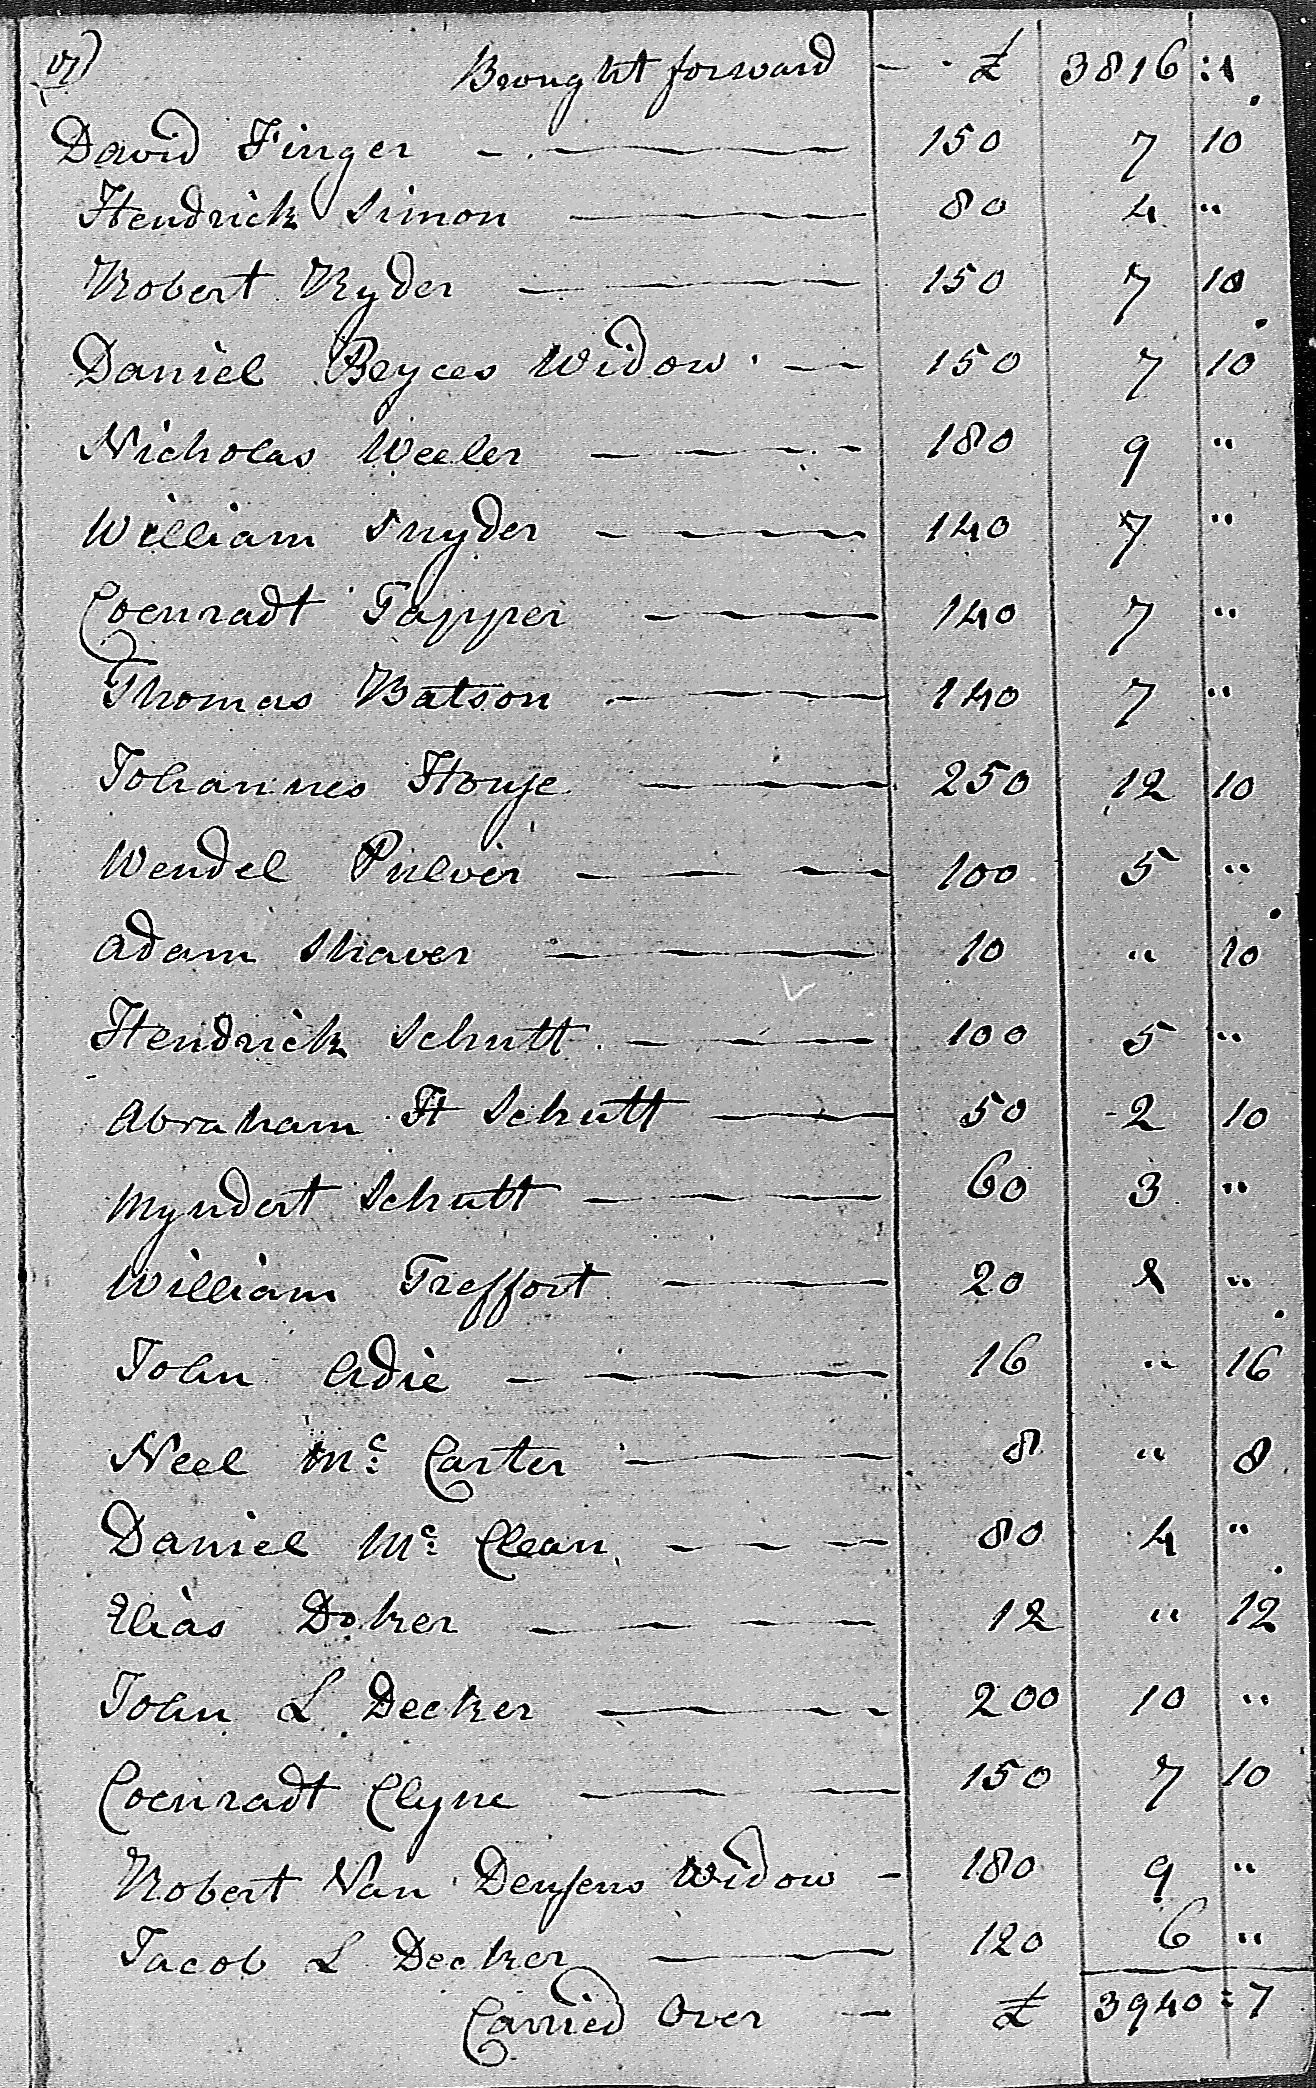 Brought forward - - £ 3816 : 1
David Finger 150 7 10
Hendrick Simon 80 4 "
Robert Ryder 150 7 10
Daniel Beyces Widow 150 7 10
Nicholas Weeler 180 9 "
William Snyder 140 7 "
Coenradt Tapper 140 7 "
Thomas Batson 140 7 "
Johannes House 250 12 10
Wendel Pulver 100 5 "
Adam Shaver 10 " 10
Hendrick Schutt 100 5 "
Abraham H Schutt 50 2 10
Myndert Schutt 60 3 "
William Treffort 20 1 "
John Adie 16 " 16
Neel Mc: Carter 8 " 8
Daniel Mc: Clean 80 4 "
Elias Doker 12 " 12
John L Decker 200 10 "
Coenradt Clyne 150 7 10
Robert Van Deusens Widow - 180 9 "
Jacob L Decker 120 6 "
Carried Over - £ 3940 : 7